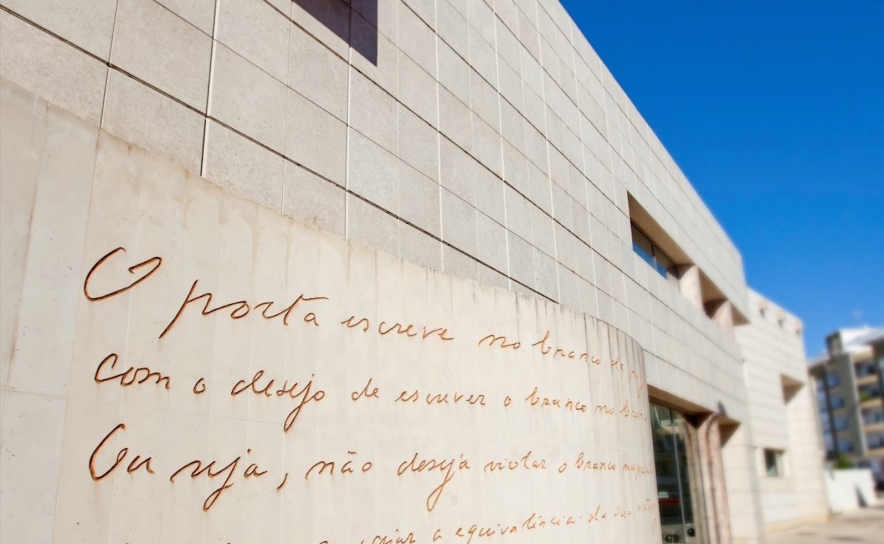 O poeta escreve no branco da
com o desejo de escrever o branco no
Ou seja, não deseja violar o branco
criar a equivalência da sua não